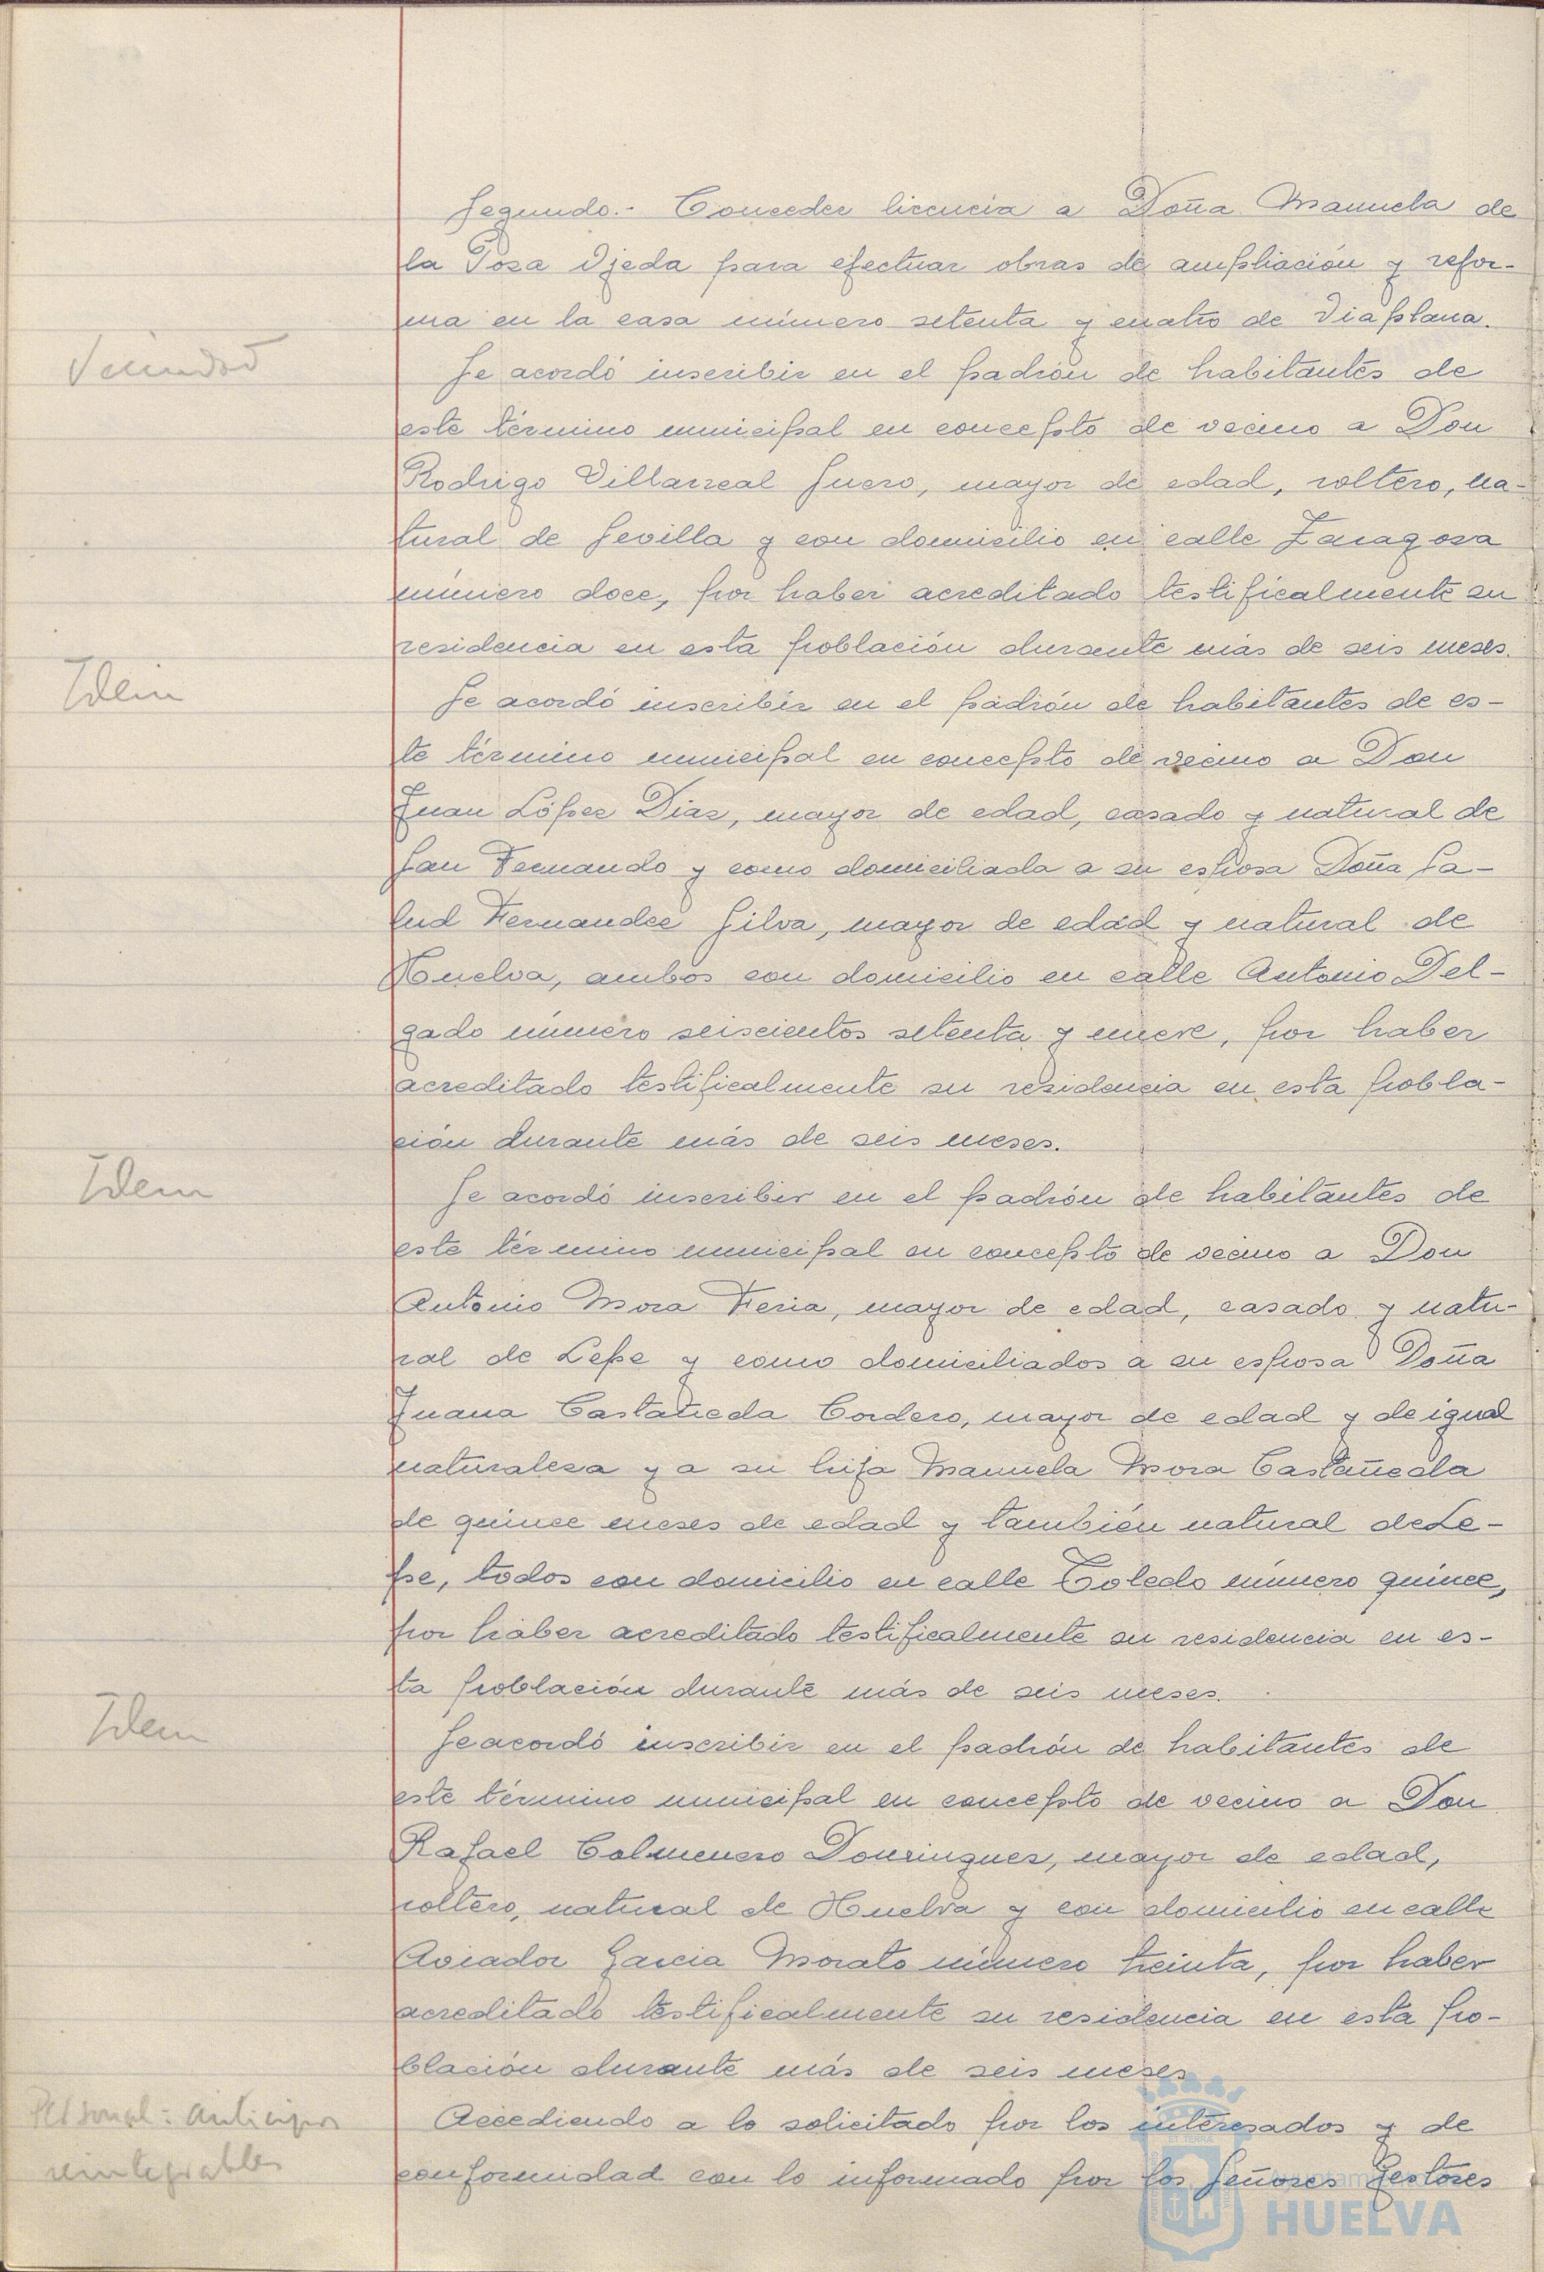 Segundo.- Conceder licencia a Doña Manuela de
la Posa Ojeda para efectuar obras de ampliación y refor-
ma en la casa número setenta y cuatro de Viaplana.
Vecindad
Se acordó inscribir en el padrón de habitantes de
este término municipal en concepto de vecino a Don
Rodrigo Villarreal Suero, mayor de edad, soltero, na-
tural de Sevilla y con domicilio en calle Zaragoza
número doce, por haber acreditado testificalmente su
residencia en esta población durante más de seis meses.
Idem
Se acordó inscribir en el padrón de habitantes de es-
te término municipal en concepto de vecino a Don
Juan López Diaz, mayor de edad, casado y natural de
San Fernando y como domiciliada a su esposa Doña Sa-
lud Fernandez Silva, mayor de edad y natural de
Huelva, ambos con domicilio en calle Antonio Del-
gado número seiscientos setenta y nueve, por haber
acreditado testificalmente su residencia en esta pobla-
ción durante más de seis meses.
Idem
Se acordó inscribir en el padrón de habitantes de
este término municipal en concepto de vecino a Don
Antonio Mora Feria, mayor de edad, casado y natu-
ral de Lepe y como domiciliados a su esposa Doña
Juana Castañeda Cordero, mayor de edad y de igual
naturaleza y a su hija Manuela Mora Castañeda
de quince meses de edad y también natural de Le-
pe, todos con domicilio en calle Toledo número quince,
por haber acreditado testificalmente su residencia en es-
ta población durante más de seis meses.
Idem
Se acordó inscribir en el padrón de habitantes de
este término municipal en concepto de vecino a Don
Rafael Colmenero Dominguez, mayor de edad,
soltero, natural de Huelva y con domicilio en calle
Aviador Garcia Morato número treinta, por haber
acreditado testificalmente su residencia en esta po-
blación durante más de seis meses
Personal: anticipos
reintegrables
Accediendo a lo solicitado por los interesados y de
conformidad con lo informado por los Señores Gestores
HUELVA